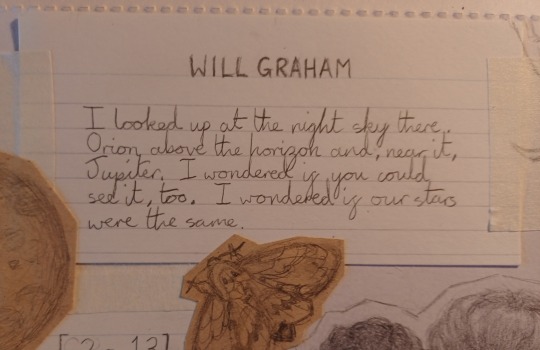 WILL GRAHAM
I looked up at the night sky there.
Orion above the horizon and, near it,
Jupiter. I wondered if you could
see it, too. I wondered if our stars
were the same.